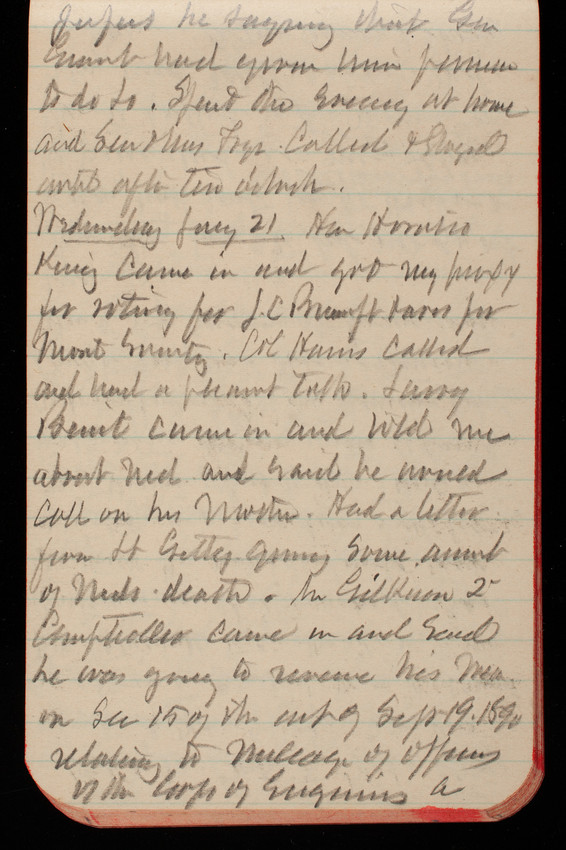 he saying that Gen
Grant had given him permission
to do so. Spent the evening at home
and Gen & Mrs Frye Called & Stayed
until after ten o'clock.
Wednesday Jany 21. Hon Horatio
King came in and got my proxy
for voting for J. C. Bancroft Davis for
Mont Society. Col Harris called
and had a pleasant talk.
came in and told me
about Ned and said he would
call on his Mother. Had a letter
from Lt Getty giving some account
of Neds death. Mr Gilkeson 2d
Comptroller came in and said
he was going to reverse his
on Sec 15 of the act of Sept 19. 1890
relating to Mileage of officers
of the Corps of Engineers a